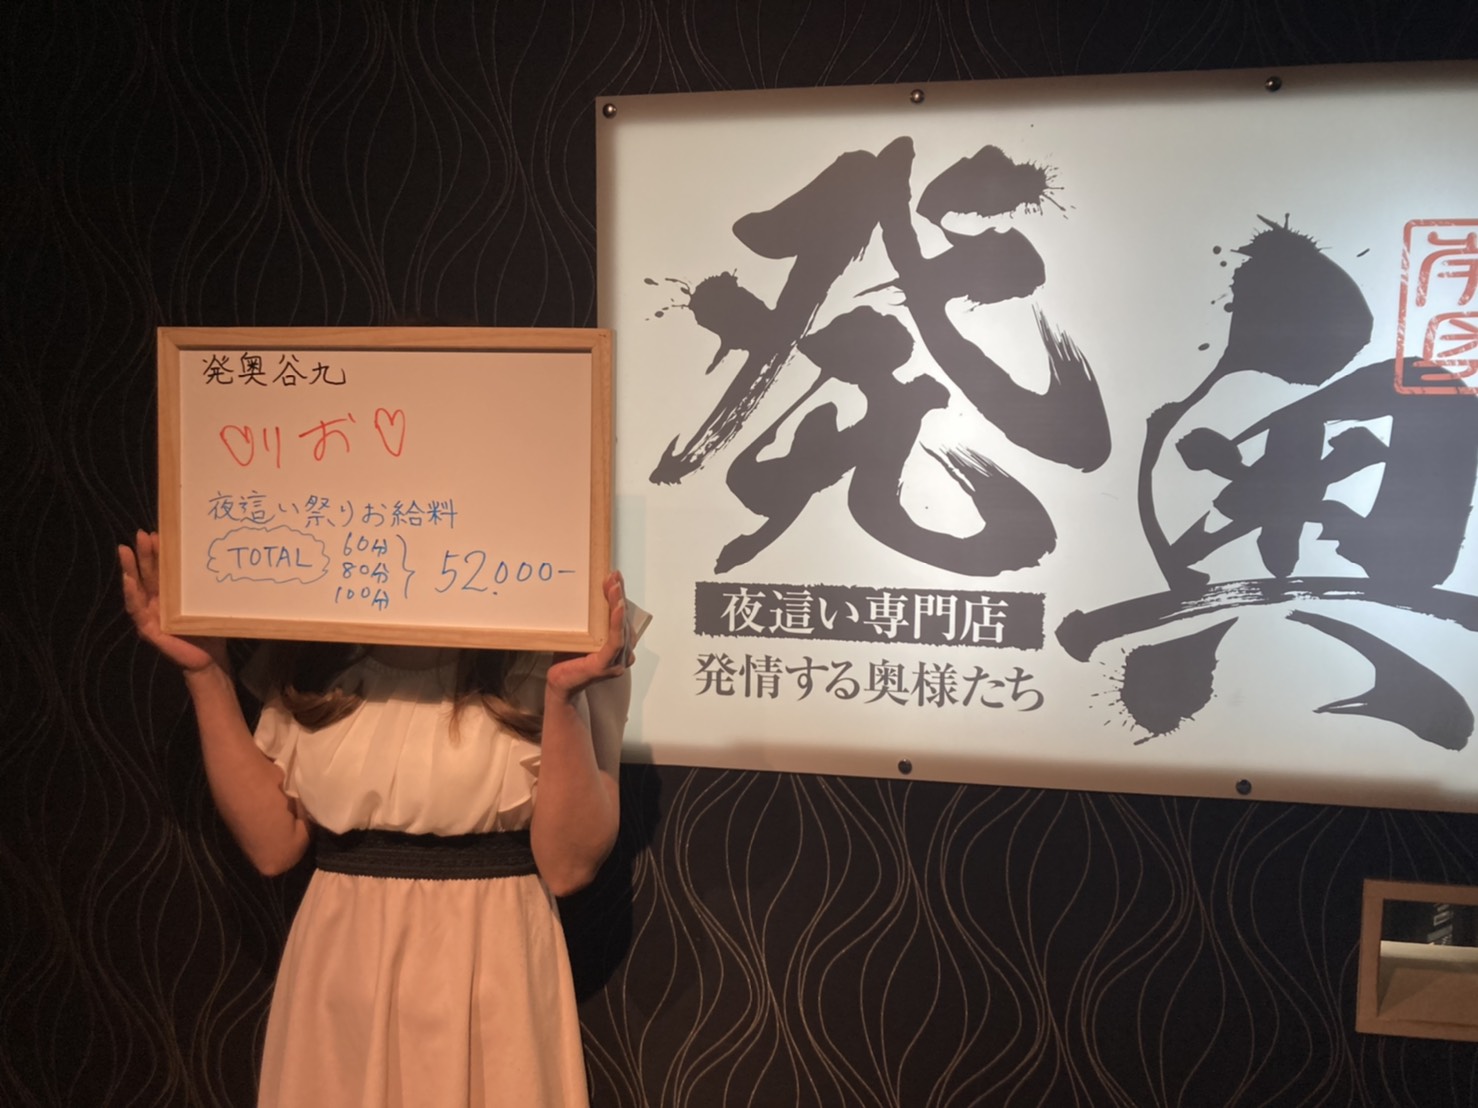 発奥谷九
♡りお♡
夜這い祭りお給料
TOTAL 60分 80分 100分 } 52.000-
発奥
夜這い専門店
発情する奥様たち